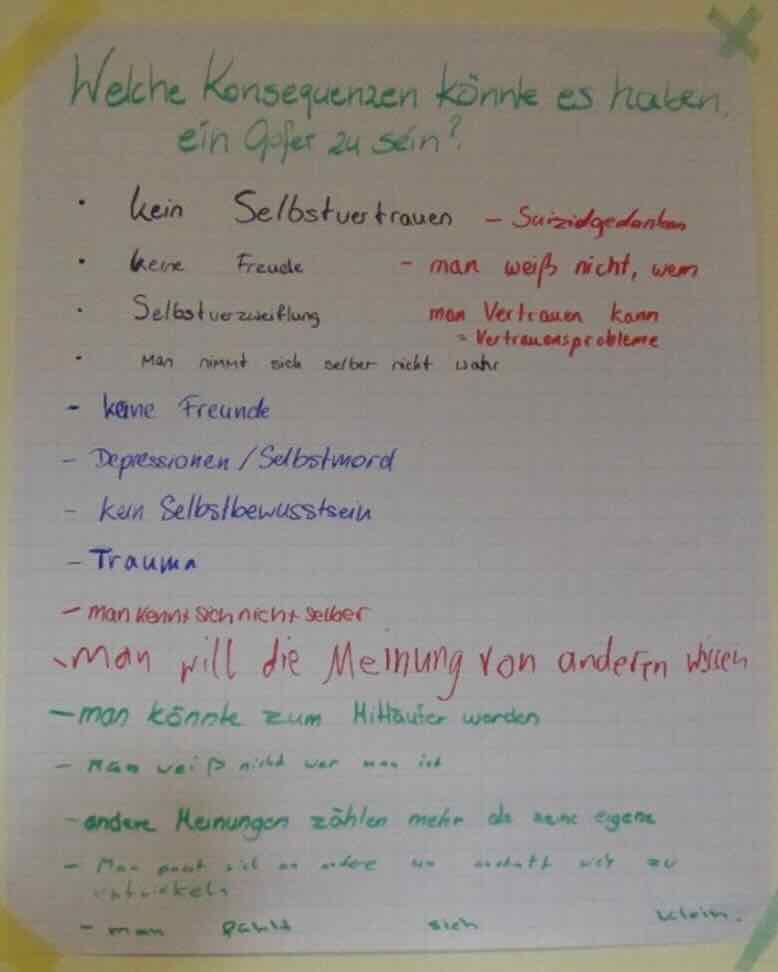 Welche Konsequenzen könnte es haben,
ein Opfer zu sein?
• kein Selbstvertrauen – Suizidgedanken
• keine Freude – man weiß nicht, wem
• Selbstverzweiflung man Vertrauen kann
= Vertrauensprobleme
• Man nimmt sich selber nicht wahr
– keine Freunde
– Depressionen / Selbstmord
– kein Selbstbewusstsein
– Trauma
– man kennt sich nicht selber
- man will die Meinung von anderen wissen
– man könnte zum Mitläufer werden
– Man weiß nicht wer man ist
- andere Meinungen zählen mehr als seine eigene
– Man passt sich an andere an anstatt sich zu
entwickeln
- man fühlt sich klein.